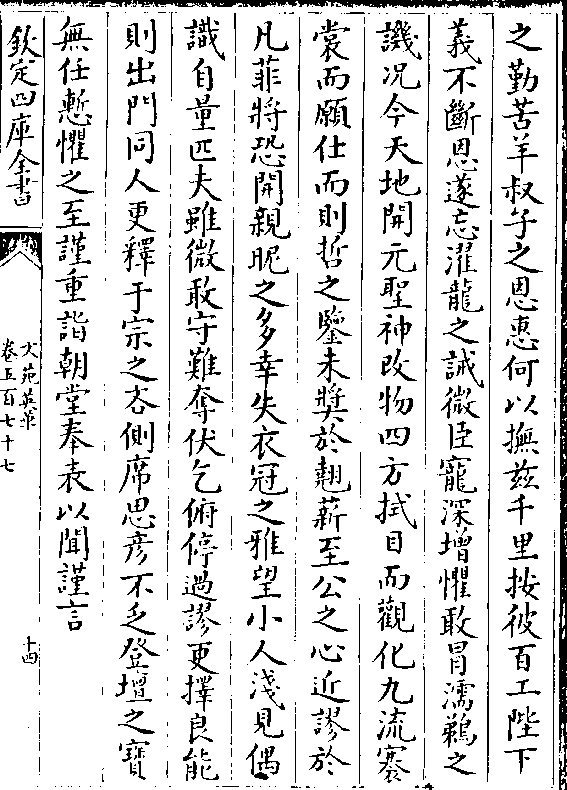 之勤苦羊叔子之恩惠何以撫兹千里按彼百工陛下
義不斷恩遂忘濯龍之誡微臣寵深增懼敢冒濡鵜之
譏况今天地開元聖神改物四方拭目而觀化九流褰
裳而願仕而則哲之鑒未奬於翹薪至公之心近謬於
凡菲將恐開親昵之多幸失衣冠之雅望小人淺見偶
識自量匹夫雖微敢守難奪伏乞俯停過謬更擇良能
則出門同人更釋于宗之吝側席思彦不乏登壇之寶
無任慙懼之至謹重詣朝堂奉表以聞謹言
欽定四庫全書
文苑英華
卷五百七十七
十四